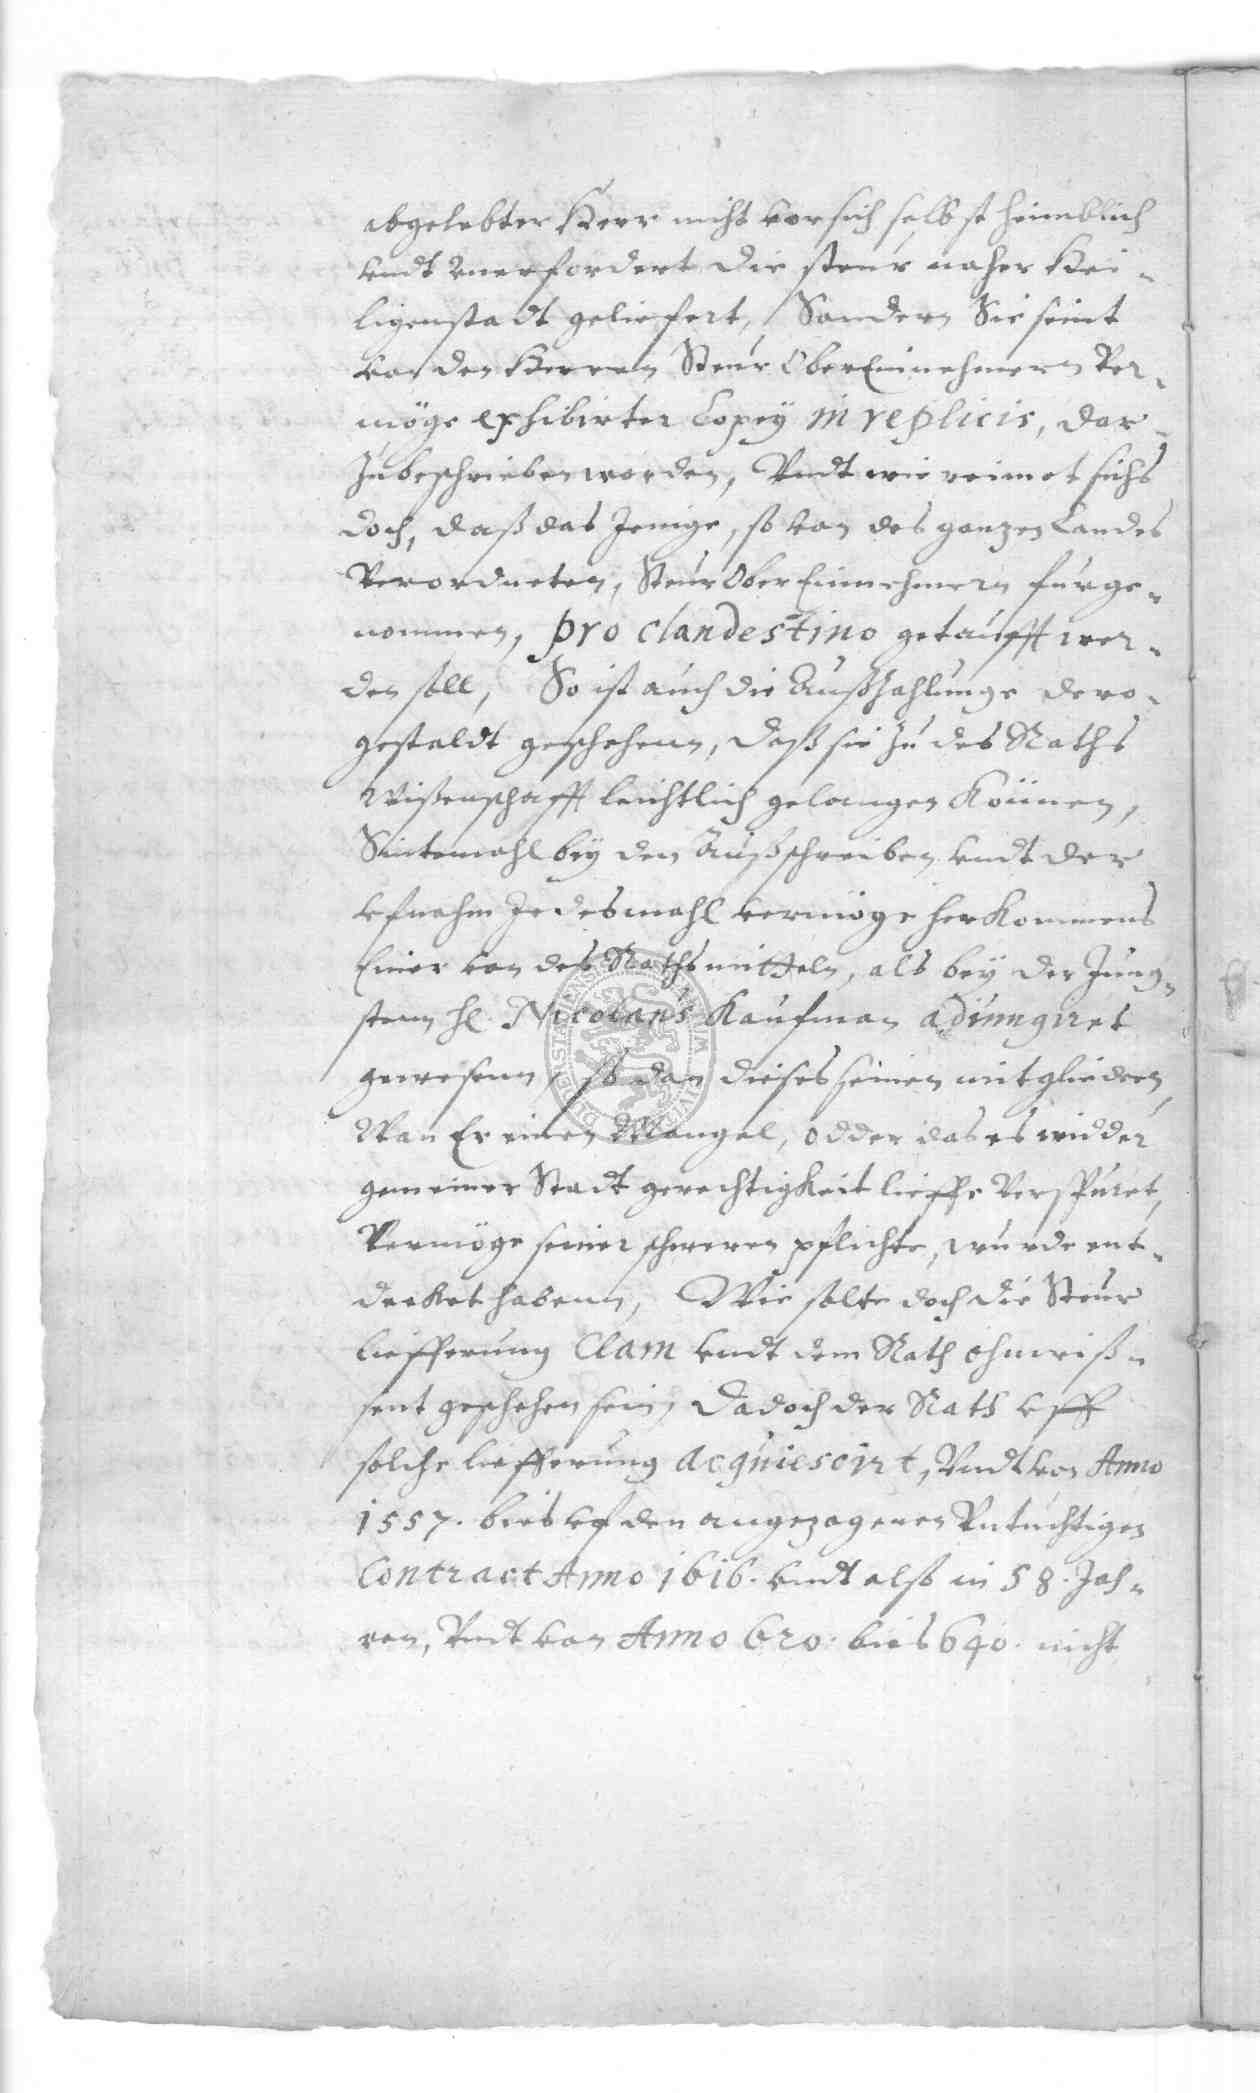 abgelebter Herr nicht vor sich selbst heimblich
vndt vnerfordert die steur naher Hei-
ligenstadt geliefert, Sondern Sie seint
von den Herren Steur Ober Einnehmern Ver-
möge exhibirter Copey in replicis, dar-
zu beschrieben worden, Vndt wie reimet sichs
doch, daß das Jenige, so von des ganzen Landes
Verordneten, Steur Ober Einnehmern furge-
nommen, pro clandestino getaufft wer-
den soll, So ist auch die Außzahlunge dero-
gestaldt geschehenn, daß sie zu des Raths
Wißenschafft leichtlich gelangen können,
Sintemahl bey den Außschreiben vndt der
vfnahm Jedesmahl vermöge herkommens
Einer von deß Raths mitteln, als bey der Jung-
stenn H. Nicolaus Kaufman adiungiret
gewesenn, so dan dieses seinen mitgliedern
Wan Er einen Mangel, odder das es widder
gemeiner Stadt gerechtigkeit lieffe Verspüret,
Vermöge seiner schweren pflichte, wurde ent-
decket habenn, Wie solte doch die Steur
liefferung Clam vndt dem Rath ohnwiß-
sent geschehen sein, Da doch der Rath vff
solche liefferung acquiescirt, Vndt von Anno
1557. bies vf den angezogenen Vntuchtigen
Contract Anno 1616. vndt also in 58. Jah-
ren, Vndt von Anno 620. bies 640. nicht